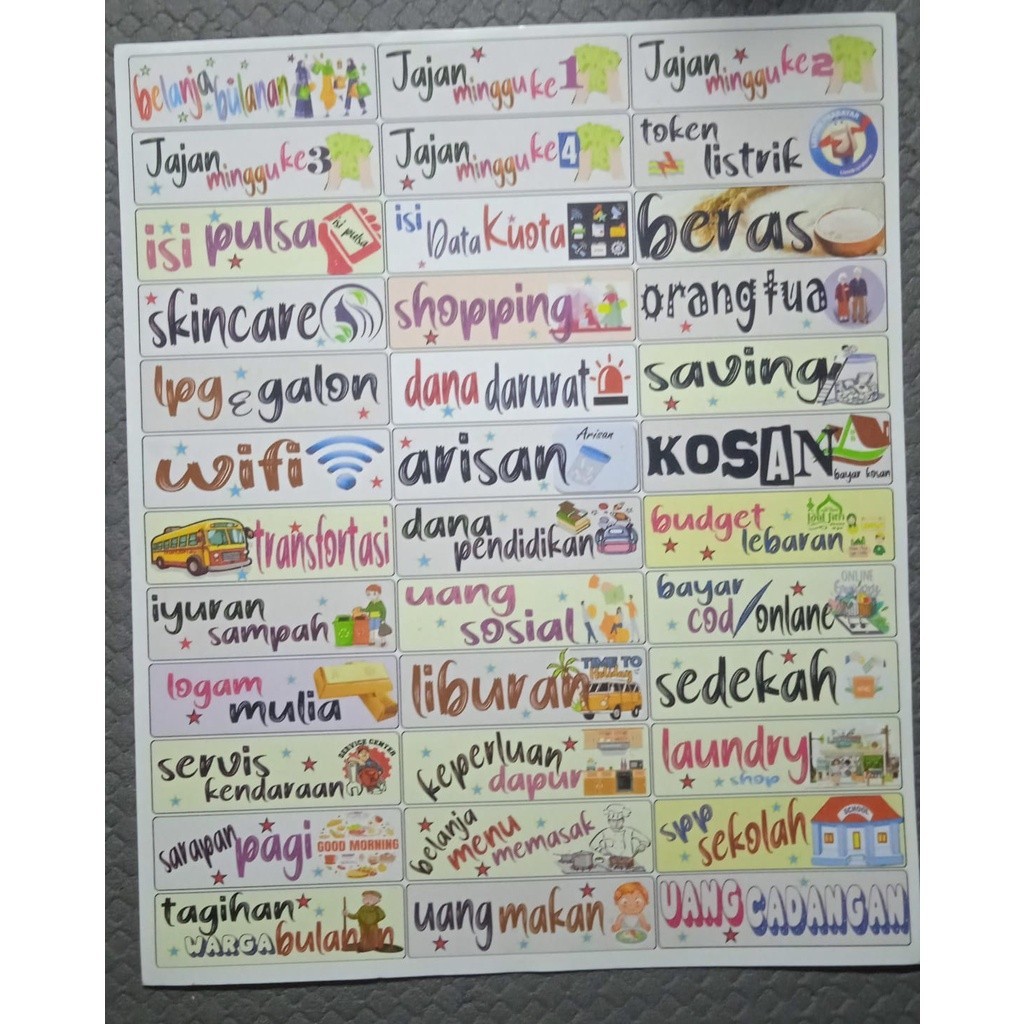 belanja bulanan
Jajan minggu ke 1
Jajan minggu ke 2
Jajan minggu ke 3
Jajan minggu ke 4
token listrik
isi pulsa
isi pulsa
isi Data Kuota
beras
skincare
shopping
orang tua
lpg & galon
dana darurat
saving
wifi
arisan
Arisan
KOSAN
bayar kosan
transfortasi
dana pendidikan
budget lebaran
iyuran sampah
uang sosial
bayar cod/onlane
ONLINE
logam mulia
liburan
TIME TO
Holiday
sedekah
servis kendaraan
SERVICE CENTER
keperluan dapur
laundry
shop
sarapan pagi
GOOD MORNING
belanja menu memasak
spp sekolah
SCHOOL
tagihan
WARGA bulanan
uang makan
UANG CADANGAN